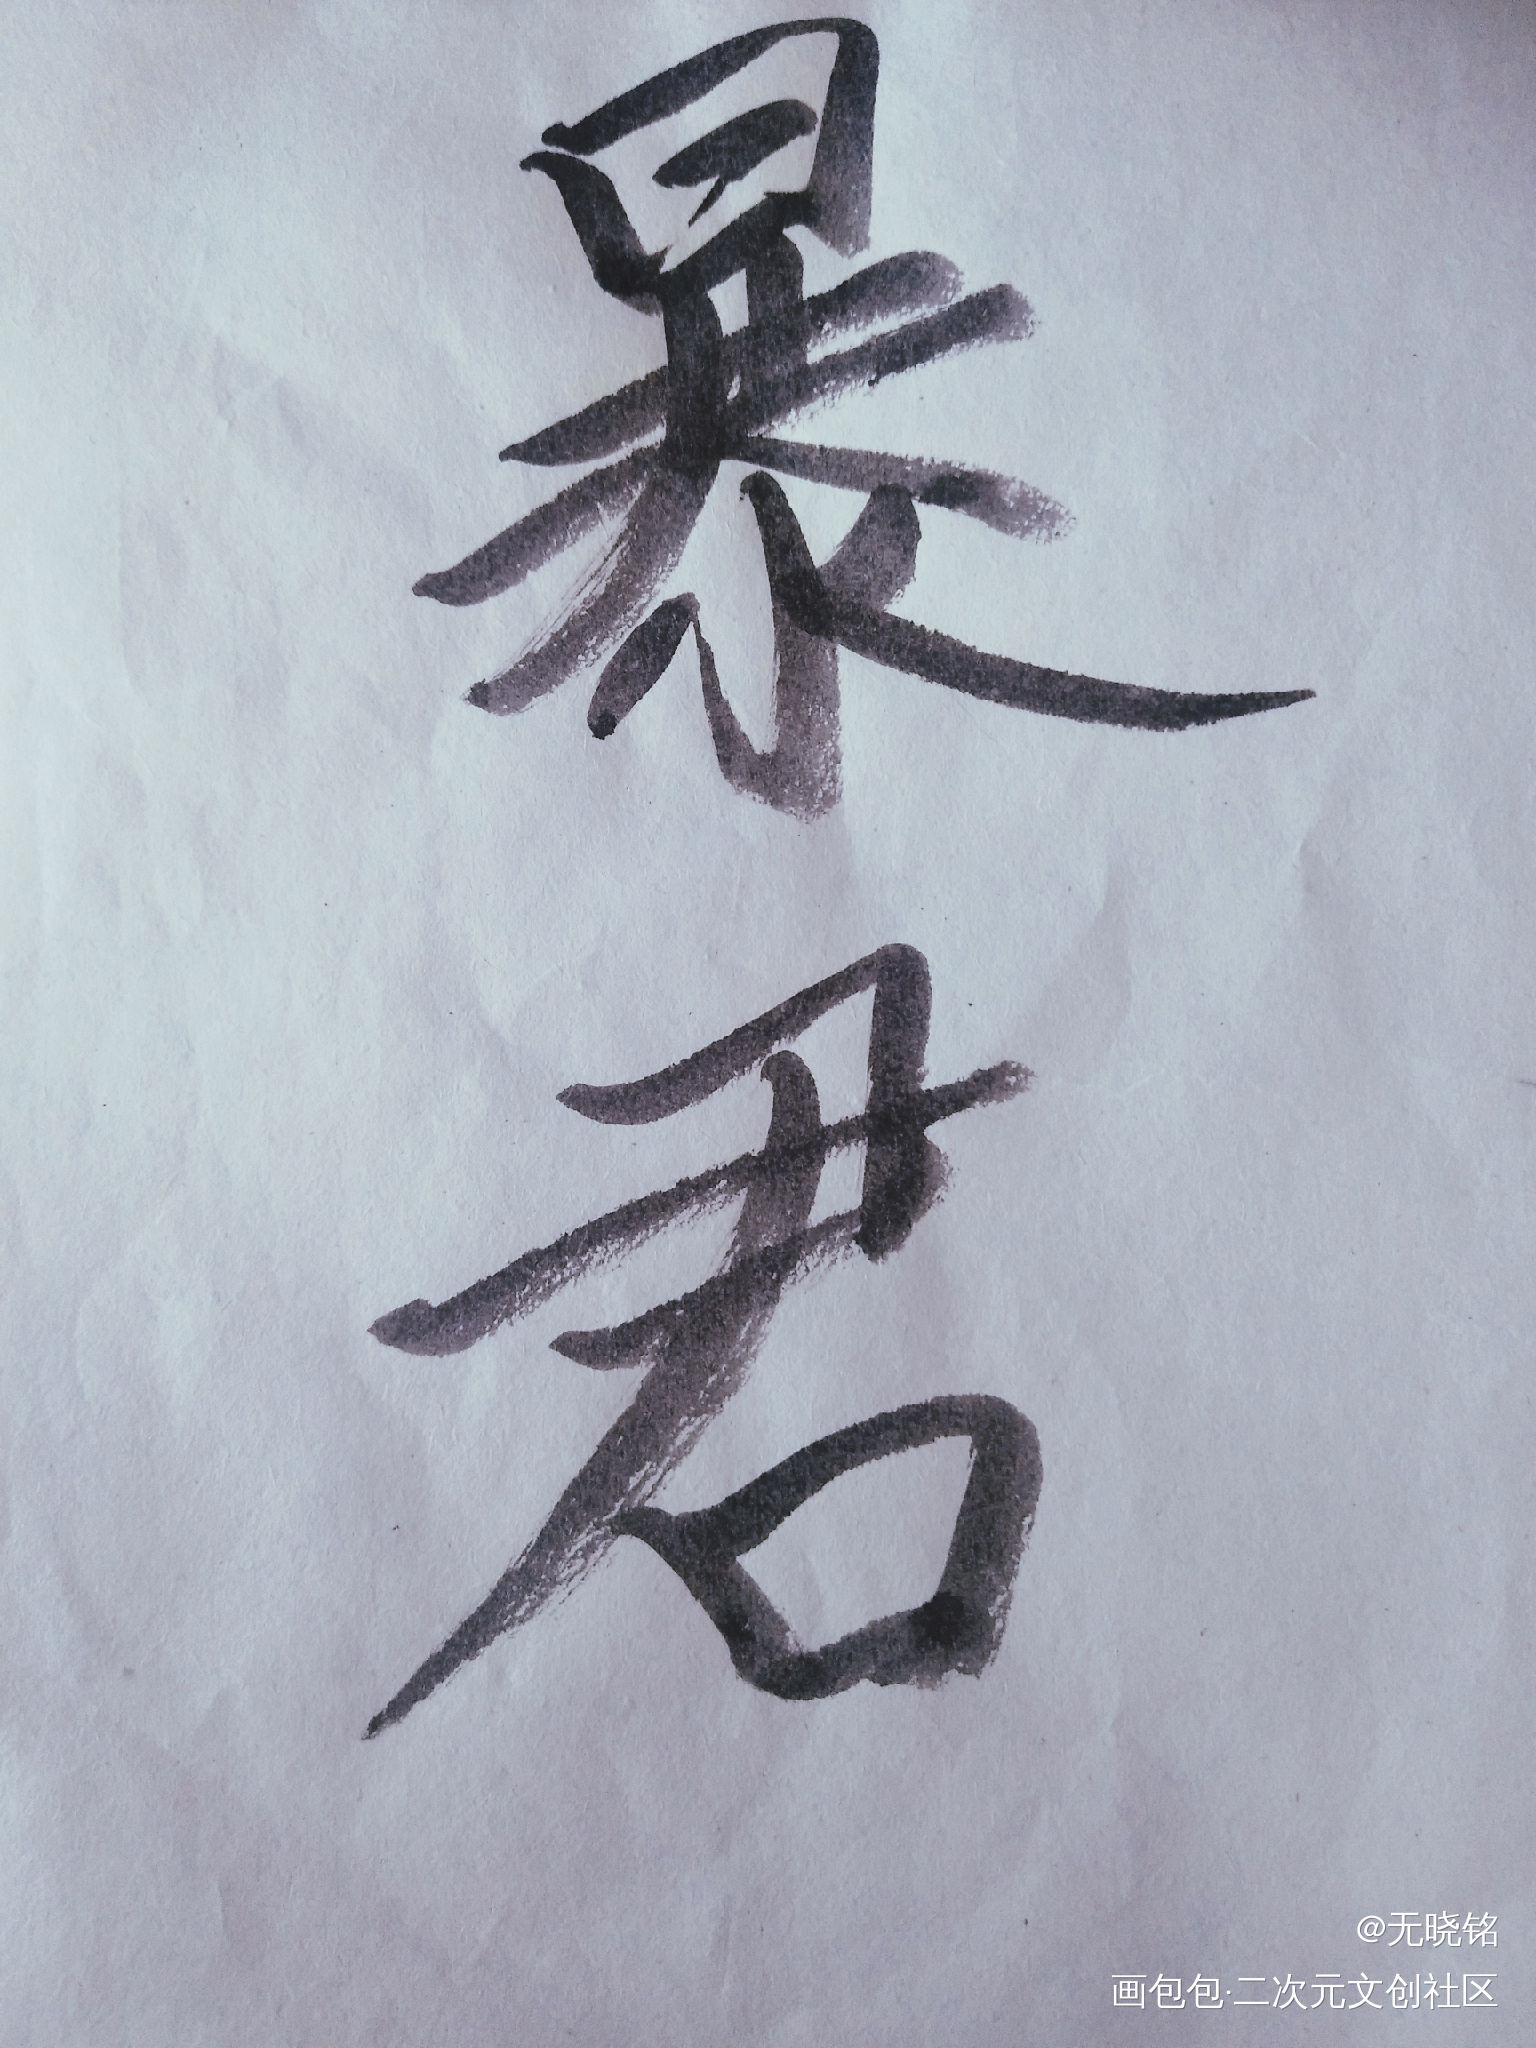 暴君
@无晓铭
画包包·二次元文创社区